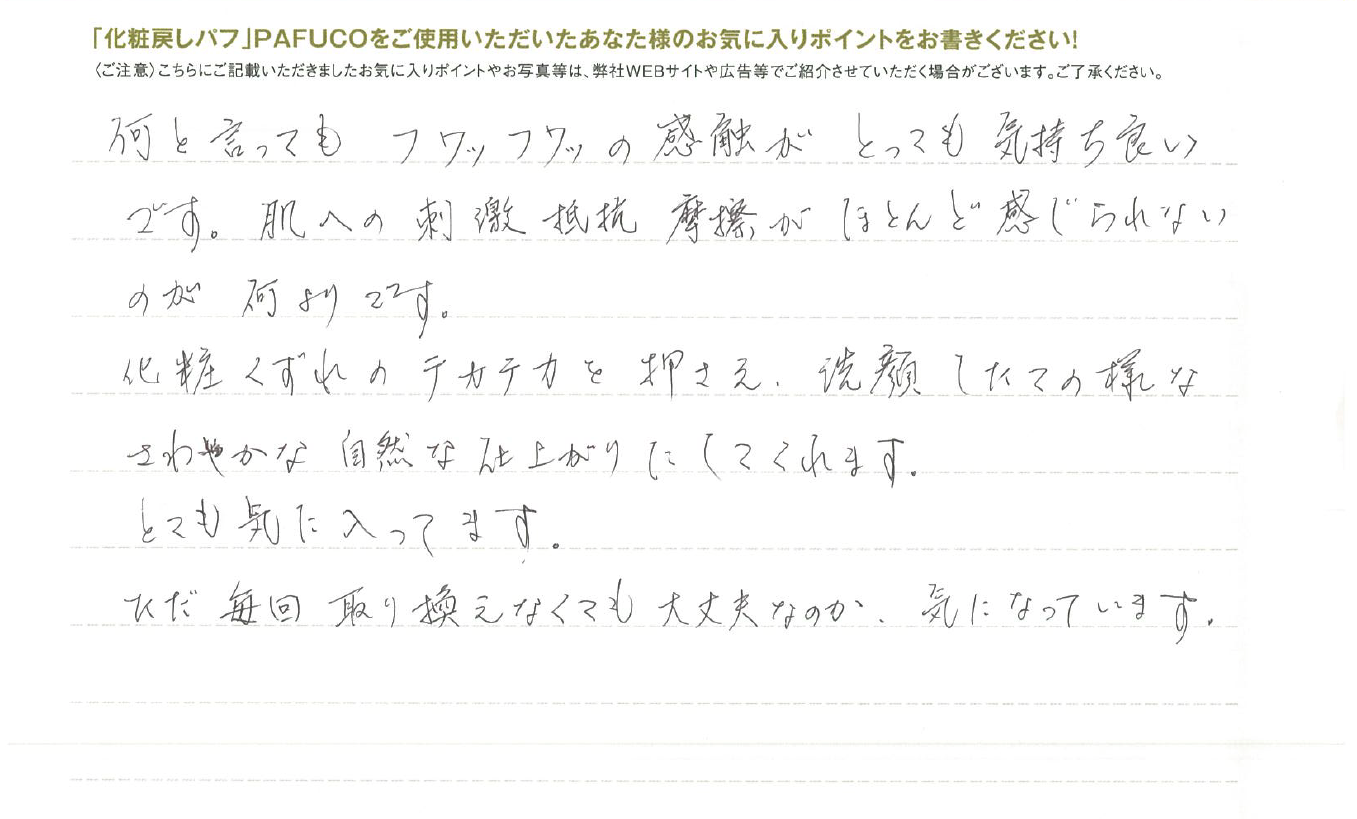 「化粧戻しパフ」PAFUCOをご使用いただいたあなた様のお気に入りポイントをお書きください!
〈ご注意〉こちらにご記載いただきましたお気に入りポイントやお写真等は、弊社WEBサイトや広告等でご紹介させていただく場合がございます。ご了承ください。
何と言っても フワッフワッの感触が とっても気持ち良い
です。肌への刺激 抵抗 摩擦が ほとんど感じられない
のが 何よりです。
化粧くずれのテカテカを押さえ、洗顔したての様な
さわやかな自然な仕上がりにしてくれます。
とても気に入ってます。
ただ毎回取り換えなくても大丈夫なのか、気になっています。